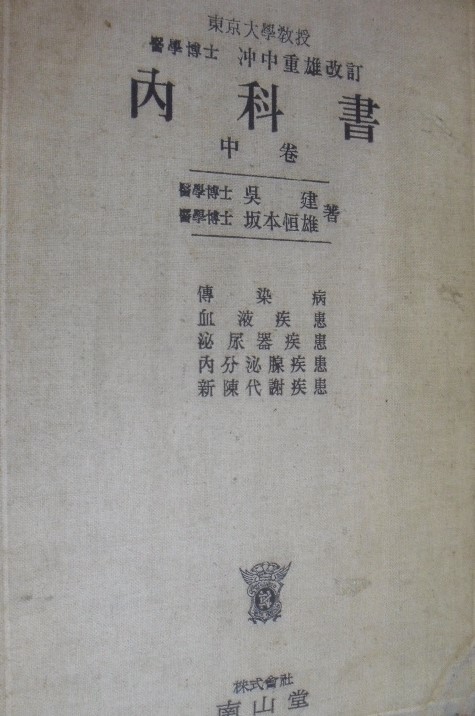 東京大學教授
醫學博士 冲中重雄改訂
內科書
中卷
醫學博士 吳建
醫學博士 坂本恒雄 著
傳染病
血液疾患
泌尿器疾患
內分泌腺疾患
新陳代謝疾患
株式會社
南山堂